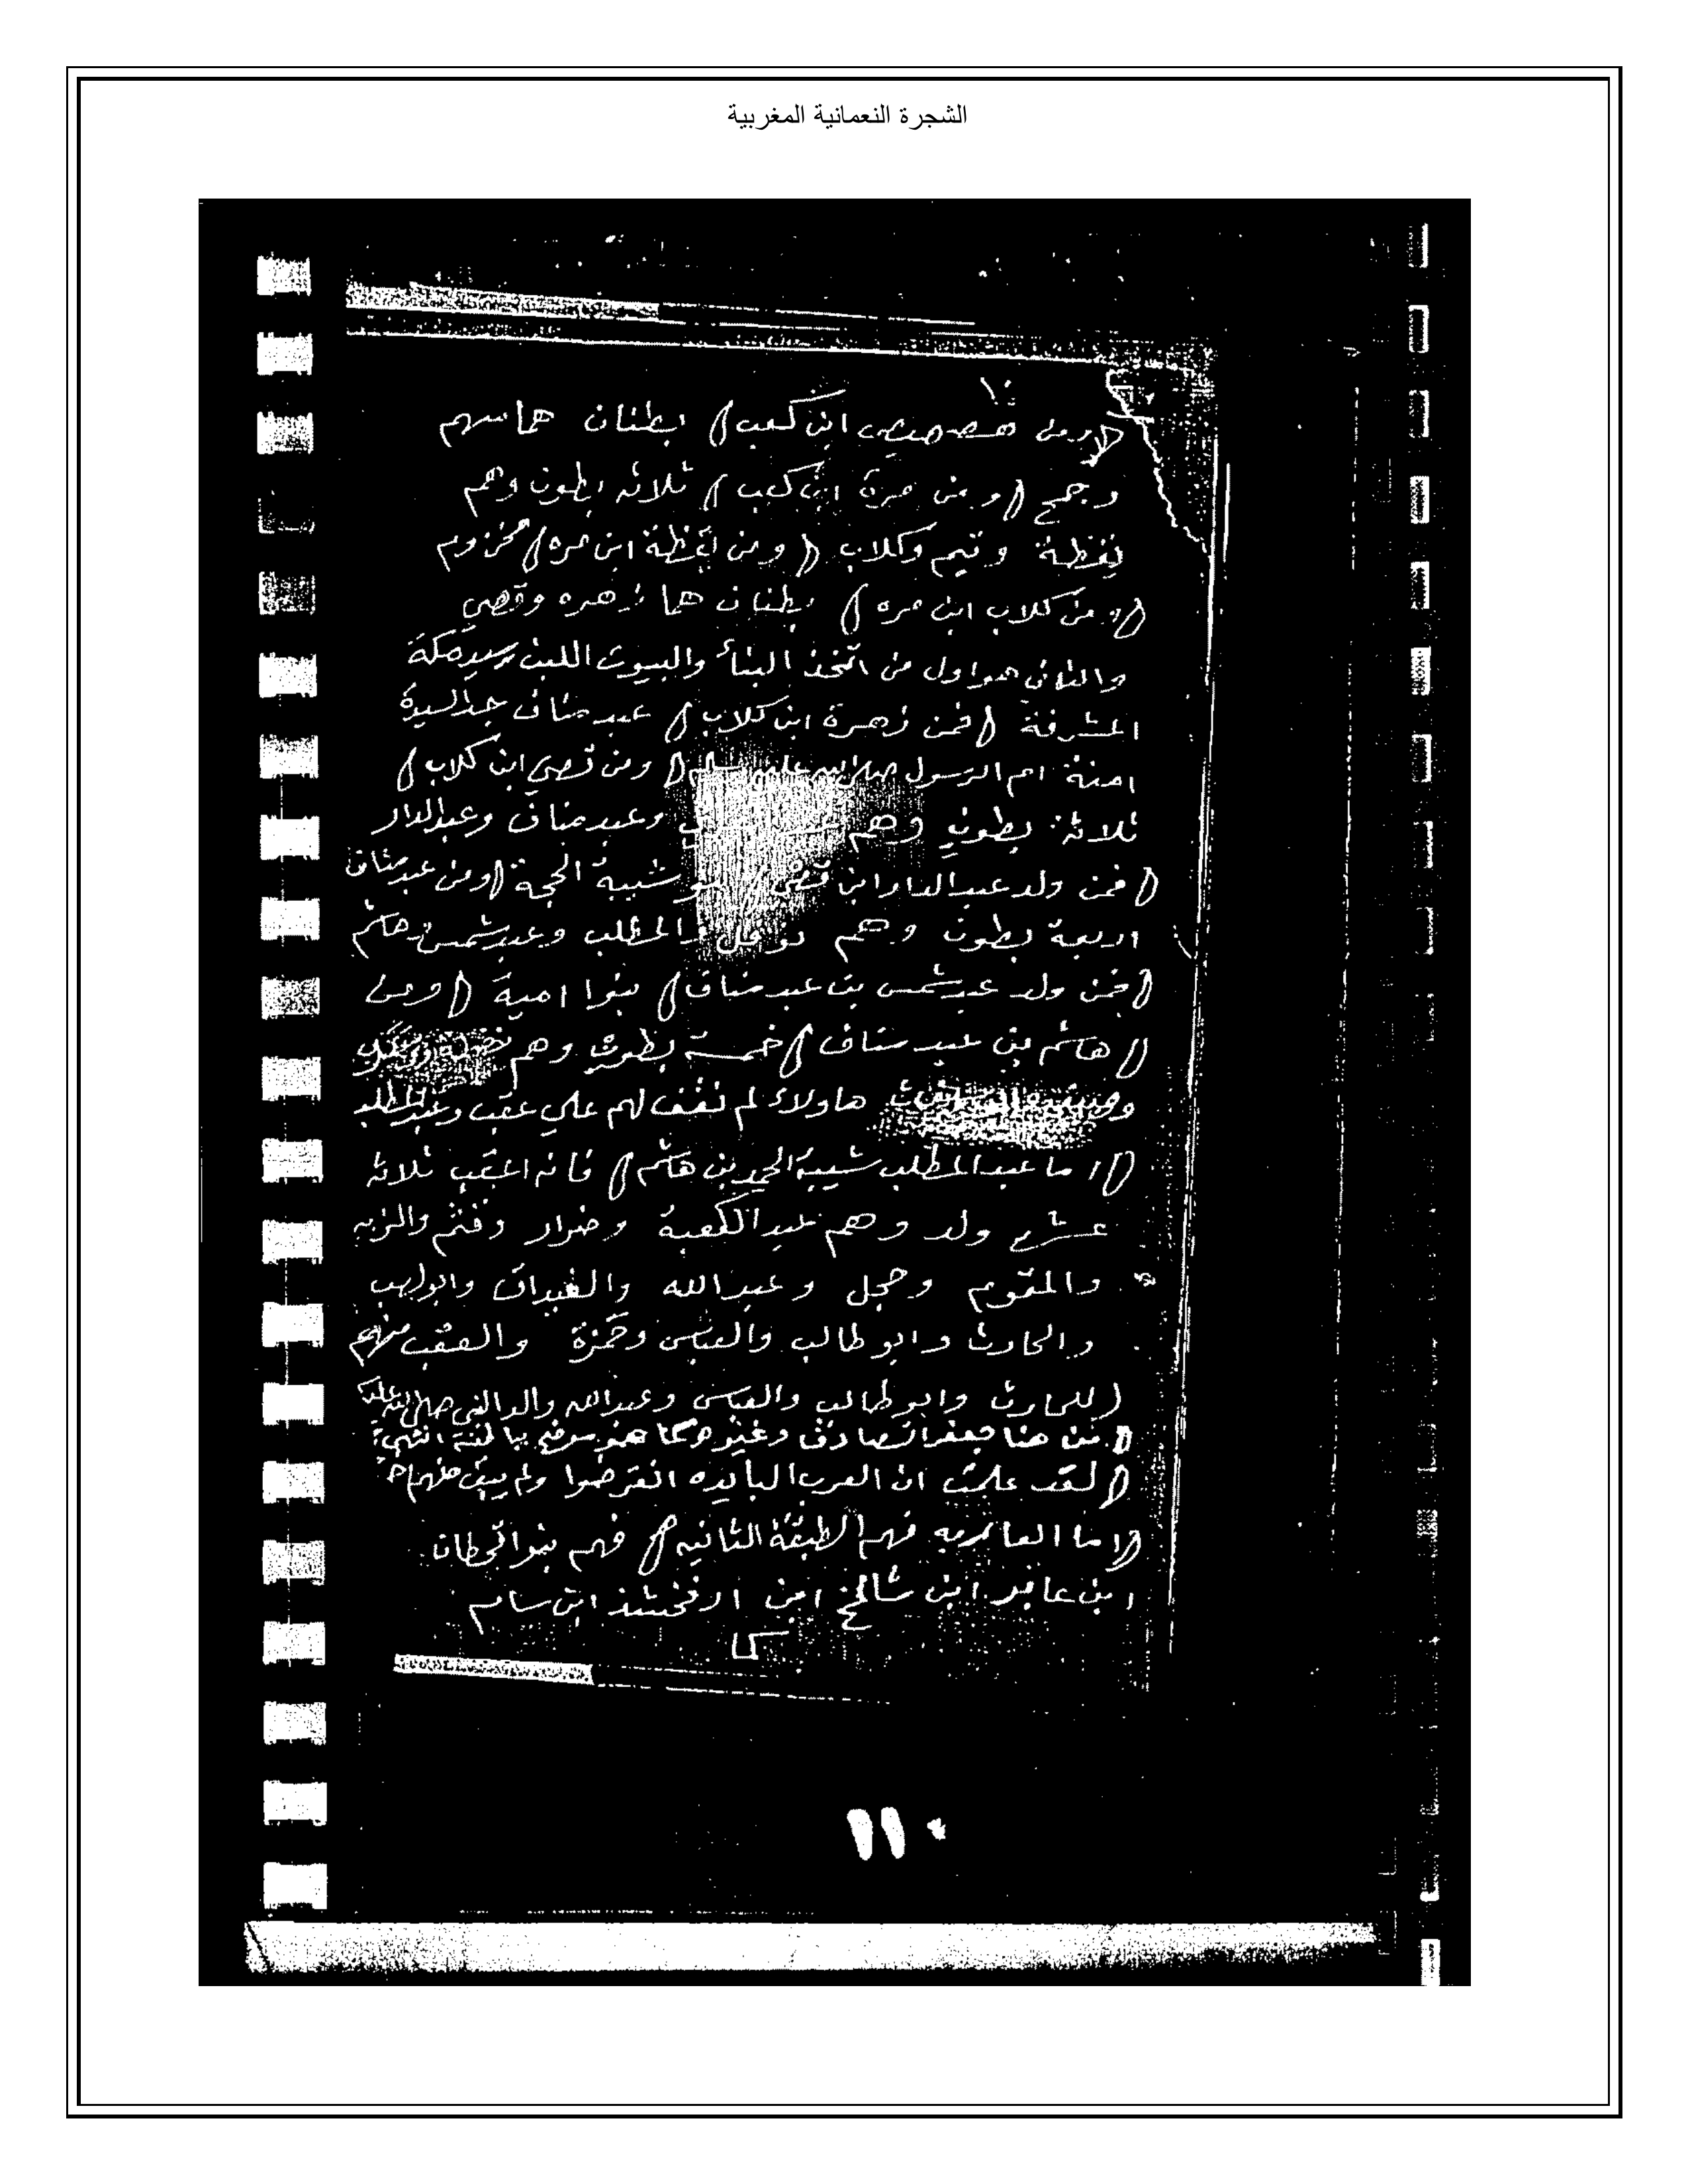 الشجرة النعمانية المغربية
١٠
(ومن هصيص ابن كعب) بطنان هما سهم
وجمح (ومن مرة ابن كعب) ثلاثه بطون وهم
يقظة وتيم وكلاب (ومن يقظة ابن مره) مخزوم
(ومن كلاب ابن مره) بطنان هما زهره وقصي
والثاني هو اول من اتخذ البناء والبيوت اللبن مكة
المشرفة (فمن زهرة ابن كلاب) عبد مناف جد السيدة
امنة ام الرسول صلى الله عليه وسلم (ومن قصي ابن كلاب)
ثلاثة بطون وهم وعبد مناف وعبد الدار
(فمن ولد عبد الدار ابن قصي) بنو شيبة الحجبة (ومن عبد مناف
اربعة بطون وهم نوفل والمطلب وعبد شمس وهاشم
(فمن ولد عبد شمس بن عبد مناف) بنوا امية (ومن
(هاشم بن عبد مناف) خمسة بطون وهم
هاولاء لم نقف لهم علي عقب وعبد المطلب
(اما عبد المطلب شيبة الحمد بن هاشم) فانه اعقب ثلاثه
عشر ولد وهم عبد الكعبة وضرار وقثم والزبير
والمقوم وحجل وعبد الله والغيداق وابو لهب
والحارث وابو طالب والعباس وحمزة والعقب منهم
(للحارث وابو طالب والعباس وعبد الله والد النبي صلى الله عليه
من هنا جعفر الصادق وغيره كما هو انتهى
(لقد علمت ان العرب البأيده انقرضوا ولم يبقى منهم احد
(اما العاربه فهم الطبقة الثانيه) فهم بنوا قحطان
ابن عابر ابن شالخ ابن ارفخشذ ابن سام
كما
١١٠